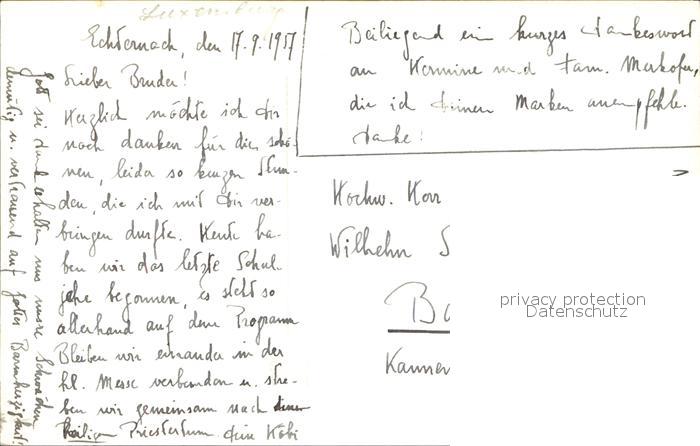 Luxemburg
Echternach, den 17.9.1957
Lieber Bruder!
Herzlich möchte ich dir
noch danken für die schö-
nen, leider so kurzen Stun-
den, die ich mit dir ver-
bringen durfte. Heute ha-
ben wir das letzte Schul-
jahr begonnen, es steht so
allerhand auf dem Programm
Bleiben wir einander in der
hl. Messe verbunden u. stre-
ben wir gemeinsam nach
heiligen Priestertum dein Köbi
Gott sei Dank erhalten uns unsre Schwächen
demütig u. vertrauend auf Gottes Barmherzigkeit.
Beiliegend ein kurzes Dankeswort
an Hermine und Fam. Merkofer,
die ich deinen Marken anempfehle.
Danke!
Hochw. Herr
Wilhelm S
Ba
Kanner
privacy protection
Datenschutz